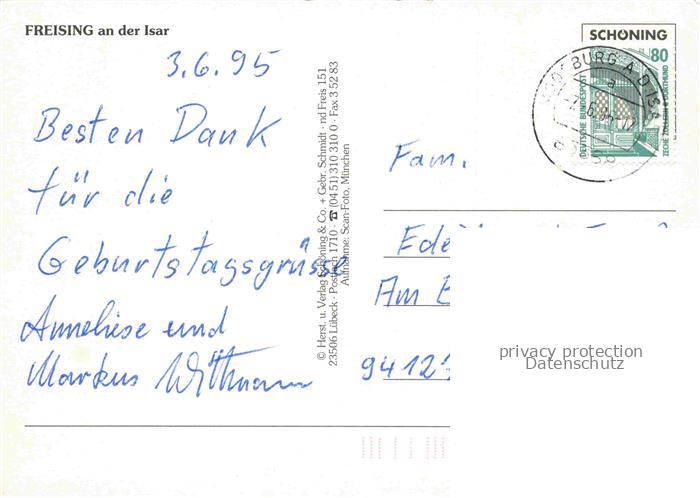 FREISING an der Isar
3.6.95
Besten Dank
für die
Geburtstagsgrüsse
Anneliese und
Markus Wittmann
© Herst. u. Verlag Schöning & Co. + Gebr. Schmidt
23506 Lübeck · Postfach 1710 · ☎ (04 51) 310 310 0 · Fax 3 52 83
Aufnahme: Scan-Foto, München
nd Freis 151
SCHÖNING
80
DEUTSCHE BUNDESPOST
ZECHE ZOLLERN II DORTMUND
BURG A.D.
a
Fam.
Ede
Am
9412
privacy protection
Datenschutz